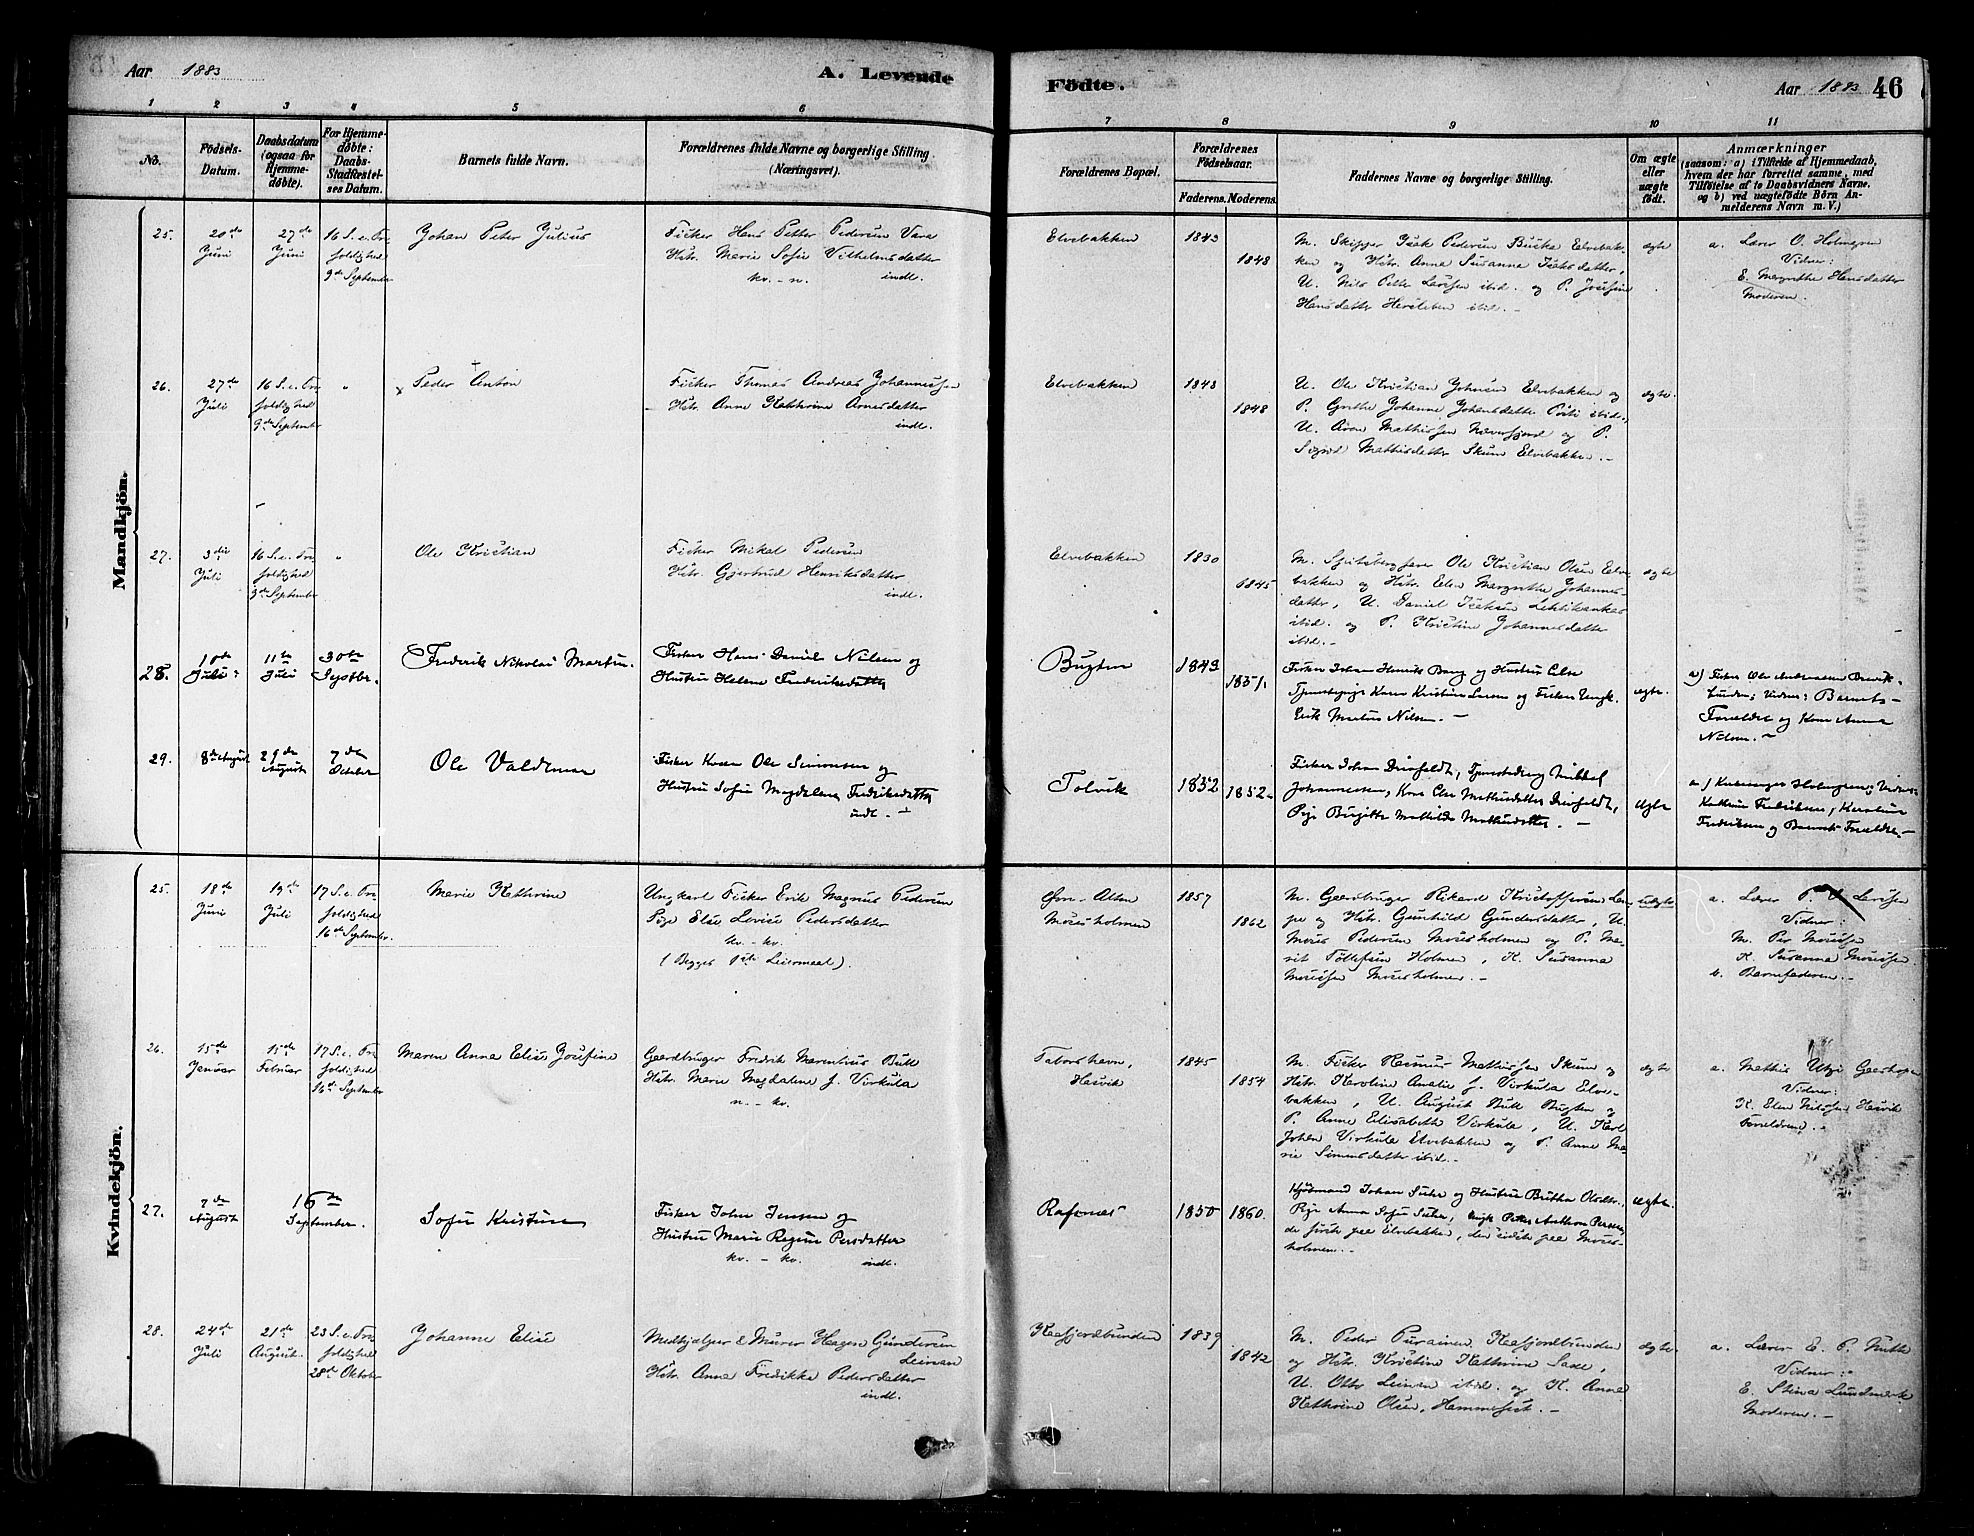 Aar 1883
A. Levende
Födte.
Aar 1883
46
1 2 3 4 5 6 7 8 9 10 11
No.
Födsels-Datum.
Daabsdatum (ogsaa for Hjemmedøbte).
For Hjemmedøbte: Daabs-Stadfæstelses Datum.
Barnets fulde Navn.
Forældrenes fulde Navne og borgerlige Stilling (Næringsvei).
Forældrenes Bopæl.
Forældrenes Födselsaar.
Faderens. Moderens.
Faddernes Navne og borgerlige Stilling.
Om ægte eller uægte födt.
Anmærkninger
(saasom: a) i Tilfælde af Hjemmedaab,
hvem der har forrettet samme, med
Tilföielse af to Daabsvidners Navne.
og b) ved uægtefödte Börn Anmelderens Navn m. V.)
Mandkjön.
25.
20de Juni
27de Juni
16 S. e. Trefoldighed 9de September
Johan Peter Julius
Fisker Hans Petter Pedersen Vara
Hstr. Marie Sofie Vilhelmsdatter
kv. - n. indl.
Elvebakken
1843
1848
M. Skipper Isak Pedersen Buska Elvebakken
og Hstr. Anna Susanna Isaksdatter,
U. Nils Petter Larssen ibid. og P. Josefine
Hansdatter Hersleben ibid. -
ægte
a. Lærer O. Holmgren
Vidner:
E. Margrethe Hansdatter
Moderen.
26.
27de Juli
16 S. e. Trefoldighed 9de September
"
Peder Anton
Fisker Thomas Andreas Johannessen
Hstr. Anne Kathrine Arnesdatter
indl.
Elvebakken
1843
1848
U. Ole Kristian Johnsen Elvebakken og
P. Grethe Johanne Johansdatter ibid.,
U. Aron Mathissen Næverfjord og P.
Sigrid Mathisdatter Skum Elvebakken. -
ægte.
27.
3die Juli
16 S. e. Trefoldighed 9de September
"
Ole Kristian
Fisker Mikal Pedersen
Hstr. Gjertrud Henriksdatter
indl.
Elvebakken
1830
1845
M. Spitsbergfarer Ole Kristian Olsen Elvebakken
og Hstr. Elen Margrethe Johannesdatter,
U. Daniel Isaksen
ibid. og P. Kristine Johannesdatter
ibid. -
ægte
28.
10de Juli
11te Juli
30te Septbr.
Fredrik Nikolai Martin.
Fisker Hans Daniel Nilsen og
Hustru Helene Fredriksdatter
Bugten
1843
1851.
Fisker Johan Henrik Bang og Hustru Else
Tjenestepige Karen Kristine Larsen og Fisker Ungk.
Erik Martus Nilsen. -
ægte.
a) Fisker Ole Andreassen
Vidner: Barnets
Forældre og Kone Anna
Nilsen. -
29.
8de August
29de August
7de October
Ole Valdemar
Fisker Kven Ole Simonsen og
Hustru Sofie Magdalena Fredriksdatter
indl. -
Tolvik
1852
1852.
Fisker Johan Dreyfeldt, Tjenestedreng Mikkel
Johannessen, Kone Else Mathisdatter Dreyfeldt,
Pige Birgitte Mathilde Mathisdatter. -
ægte
a) Kirkesanger Holmgren; Vidner:
Kathrine Fredriksen, Karoline
Fredriksen og Barnets Forældre. -
Kvindekjön.
25.
18de Juni
19de Juli
17 S. e. Trefoldighed 16de September.
Marie Kathrine
Ungkarl Fisker Erik Magnus Pedersen
Pige Else Lovise Pedersdatter
kv. - kv.
(Begges 1ste Leiermaal).
Øvre Alten
Moursholmen
1857
1862
M. Gaardbruger Rikard Kristoffersen
og Hstr. Gunhild Gundersdatter, U.
Mours Pedersen Moursholmen og P. Marit
Tollefsen Holmen, K. Susanna
Moursen Moursholmen. -
uægte
a. Lærer P. Larssen
Vidner:
M. Per Moursen
K. Susanna Moursen
b. Barnefaderen. -
26.
15de Januar
15de Februar
17 S. e. Trefoldighed 16de September
Maren Anna Elise Josefine
Gaardbruger Fredrik Marentius Bull
Hstr. Marie Magdalene f. Virkula
n. - kv.
Taborshavn,
Hasvik
1845
1854
M. Fisker Rasmus Mathissen Skum og
Hstr. Karoline Amalie f. Virkula Elvebakken,
U. August Bull Bugten og
P. Anne Elisabeth Virkula, U. Karl
Johan Virkula Elvebakken og P. Anne Marie
Simonsdatter ibid. -
ægte
a. Mathis Utzi
Vidner:
K. Elen Nilssen Hasvik
Forældrene. -
27.
7de August
16de September.
Sofie Kristine
Fisker John Jensen og
Hustru Marie Regine Persdatter
kv. - kv. indl.
Rafsnæs
1850
1860.
Kjøbmand Johan Suhr og Hustru Britha Olsdtr.
Pige Anna Sofie Suhr, Ungk. Peter Anthon Persen,
de første paa Elvebakken, den sidste paa Moursholmen. -
ægte.
28.
24de Juli
21de August.
23 S. e. Trefoldighed 28de Oktober
Johanne Elise
Medhjælper & Murer Haagen Gundersen
Leinan
Hstr. Anne Fredikke Pedersdatter
indl.
Kaafjordbunden
1839
1842
M. Peder Purainen, Kaafjordbunden
og Hstr. Kristine Kathrine Sade,
U. Otto Leinan ibid. og K. Anna
Kathrine Olsen, Hammerfest. -
ægte.
a. Lærer E. P. Nutti
Vidner:
E. Stina Lundmark
Moderen. -